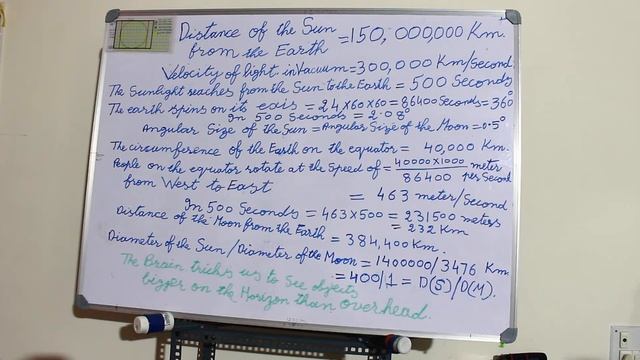 Distance of the Sun
from the Earth = 150,000,000 Km.
Velocity of light in Vacuum = 300,000 Km/Second
The Sunlight reaches from the Sun to the Earth = 500 Seconds
The earth spins on its exis = 24x60x60 = 86400 Seconds = 360°
In 500 Seconds = 2.08°
Angular Size of the Sun = Angular Size of the Moon = 0.5°
The circumference of the Earth on the equator = 40,000 Km.
People on the equator rotate at the Speed of = 40000x1000/86400 meter per Second
from West to East
= 463 meter/Second
In 500 Seconds = 463x500 = 231500 meters
= 232 Km
Distance of the Moon from the Earth = 384,400 Km.
Diameter of the Sun/Diameter of the Moon = 1400000/3476 Km
= 400/1 = D(S)/D(M).
The Brain tricks us to See objects
bigger on the Horizon than overhead.